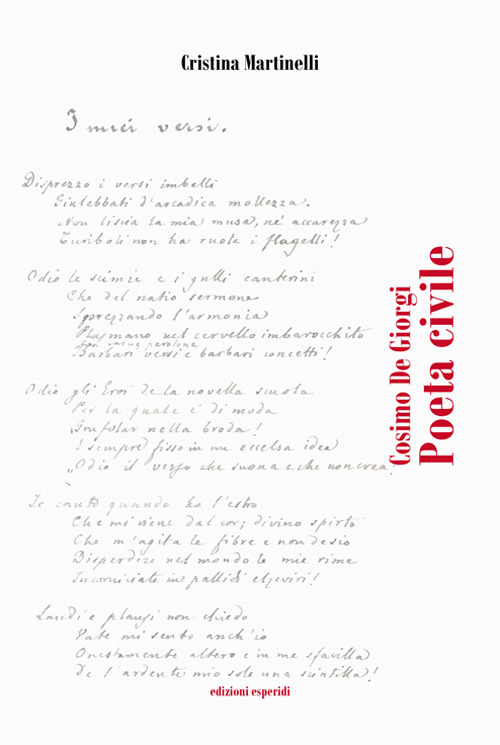 Cristina Martinelli
I miei versi.
Disprezzo i versi imbelli
Giulebbati d'arcadica mollezza.
Non liscia la mia musa, né accarezza
Turiboli non ha ruota i flagelli!
Odio le scimie e i grulli canterini
Che del natio sermone
Sprezzando l'armonia
Plasmano nel cervello imbarocchito
parolone
Barbari versi e barbari concetti!
Odio gli Eroi de la novella scuola
Per la quale è di moda
Grufolar nella broda!
E sempre fisso in me eccelsa idea
„Odio il verso che suona e che non crea.
Io canto quando ho l'estro
Che mi viene dal cor; divino spirto
Che m'agita le fibre e non desio
Disperdere nel mondo le mie rime
Incorniciate in pallidi elzeviri!
Laudi e plausi non chiedo
Vate mi sento anch'io
Onestamente altero e in me sfavilla
De l'ardente mio sole una scintilla!
Cosimo De Giorgi
Poeta civile
edizioni esperidi